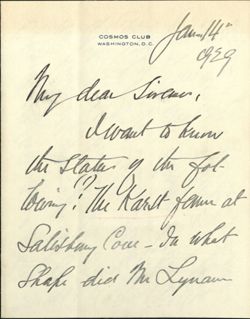 COSMOS CLUB
WASHINGTON, D.C.
Jan 14
1929
My dear
I want to know
the status of the fol-
lowing: The Karst farm at
Salisbury Cove – In what
shape did Mr Lynam